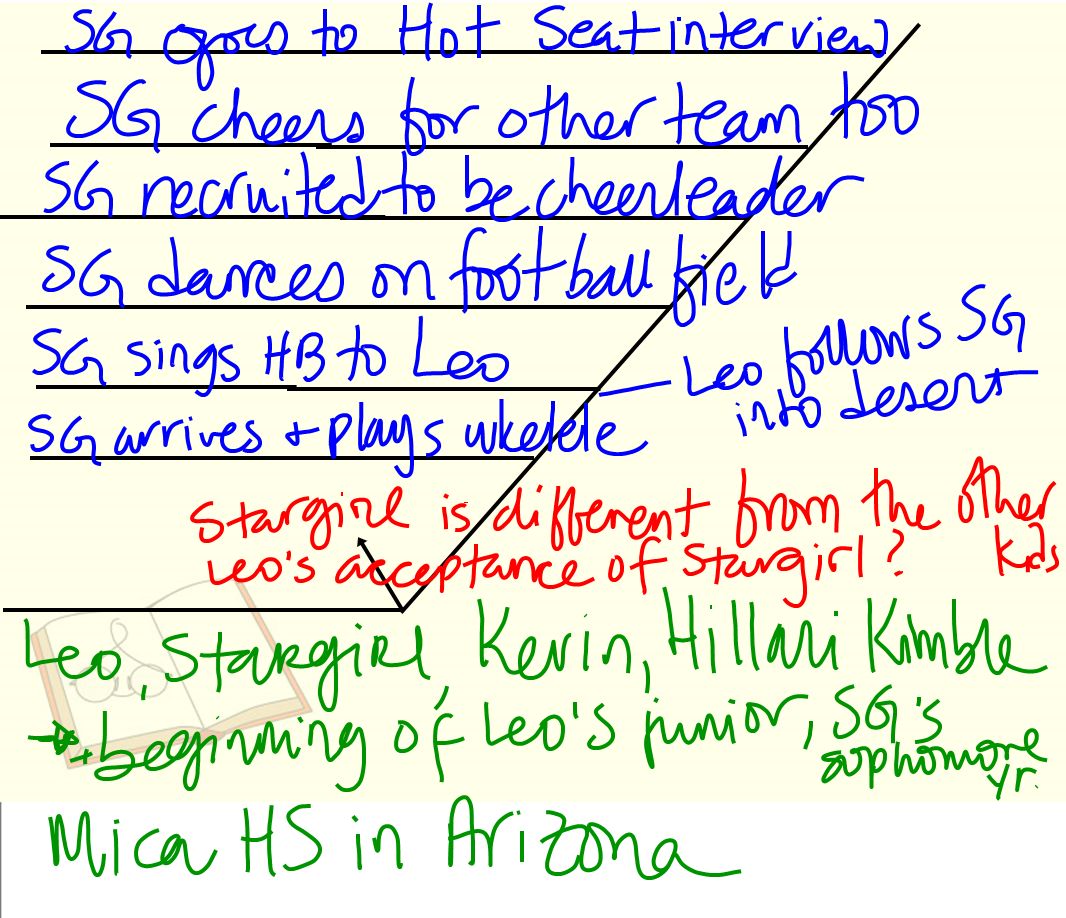 SG goes to Hot Seat interview
SG cheers for other team too
SG recruited to be cheerleader
SG dances on football field
SG sings HB to Leo
Leo follows SG
into desert
SG arrives + plays ukelele
Stargirl is different from the other
kids
Leo's acceptance of Stargirl?
Leo, Stargirl, Kevin, Hillari Kimble
→ beginning of Leo's junior, SG's
sophomore
yr.
Mica HS in Arizona